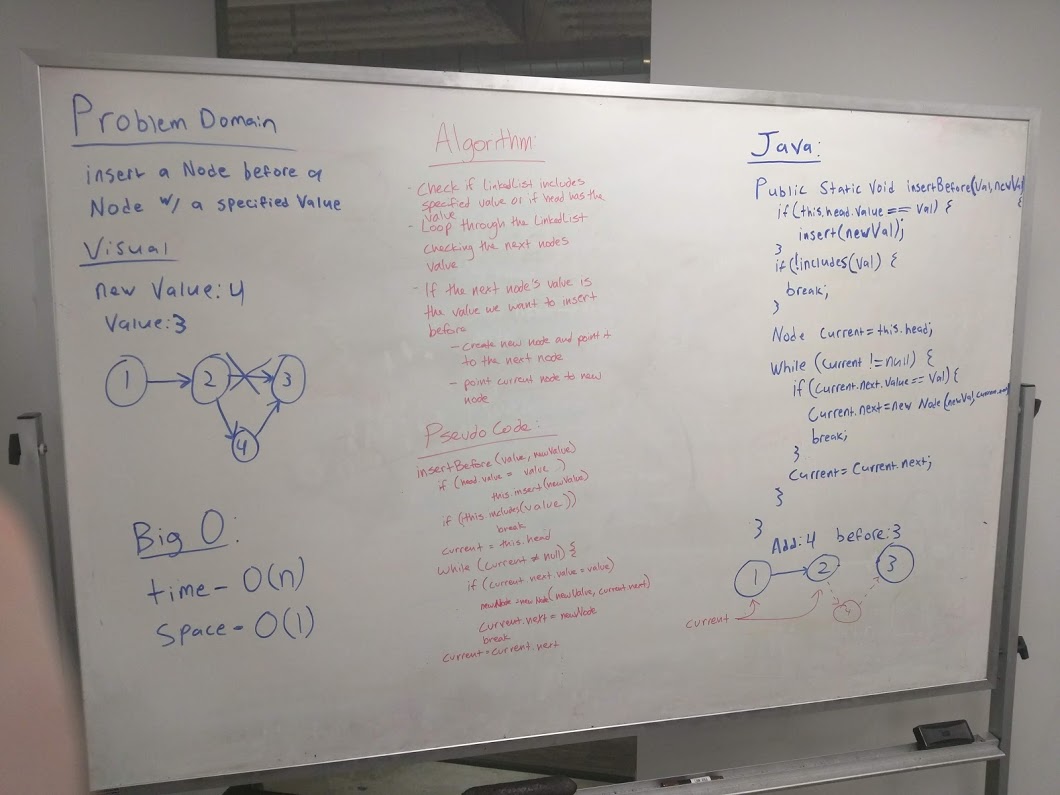 Problem Domain
insert a Node before a
Node w/ a specified Value
Visual
new Value: 4
Value: 3
1 2 3
4
Big O:
time - O(n)
Space - O(1)
Algorithm:
- Check if LinkedList includes
specified value or if head has the
value
- Loop through the LinkedList
checking the next nodes
value
- If the next node's value is
the value we want to insert
before
- create new node and point it
to the next node
- point current node to new
node
Pseudo Code:
insertBefore (value, newValue)
if (head.value = value )
this.insert(newValue)
if (!this.includes(value))
break
current = this.head
while (current ≠ null) {
if (current.next.value = value)
newNode = new Node(newValue, current.next)
current.next = newNode
break
current = current.next
Java:
Public Static Void insertBefore(Val, newVal)
{
if (this.head.Value == Val) {
insert(newVal);
}
if (!includes(Val) {
break;
}
Node current = this.head;
While (current != null) {
if (current.next.Value == Val) {
Current.next = new Node(newVal, current.next)
break;
}
Current = Current.next;
}
}
Add: 4 before: 3
1 2 3
4
current